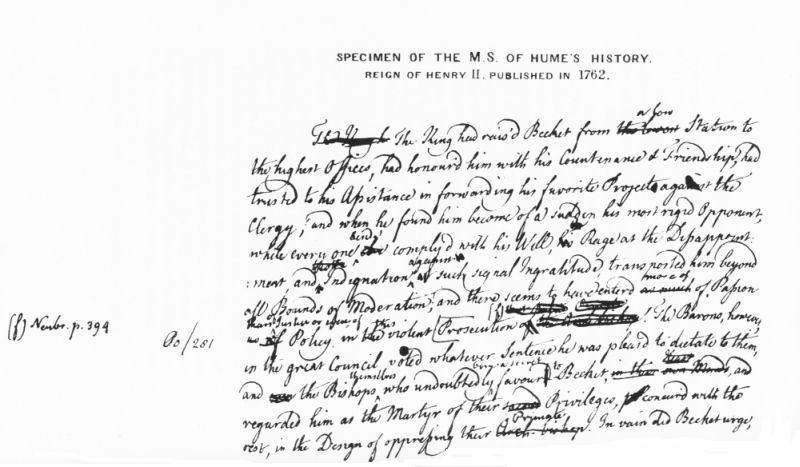 SPECIMEN OF THE M.S. OF HUME'S HISTORY.
REIGN OF HENRY II. PUBLISHED IN 1762.
a low
The King had rais'd Becket from the lowest Station to
the highest Offices, had honourd him with his Countenance & Friendship, had
trusted to his Assistance in forwarding his favorite Project against the
Clergy; and when he found him become of a sudden his most rigid Opponent,
beside
while every one complyd with his Will, Rage at the Disappoint:
against
:ment, and Indignation such signal Ingratitude, transported him beyond
more of
all Bounds of Moderation; and there seems to have enterd as much of Passion
than Justice or even of this
of Policy, in the violent Prosecution (f). The Barons, however,
in the great Council voted whatever Sentence he was pleasd to dictate to them,
themselves
and the Bishops, who undoubtedly favour to Becket, and
regarded him as the Martyr of their Privileges, concurd with the
Primate
rest, in the Design of oppressing their Arch-bishop. In vain did Becket urge,
(f) Neubr. p. 394
Po/251